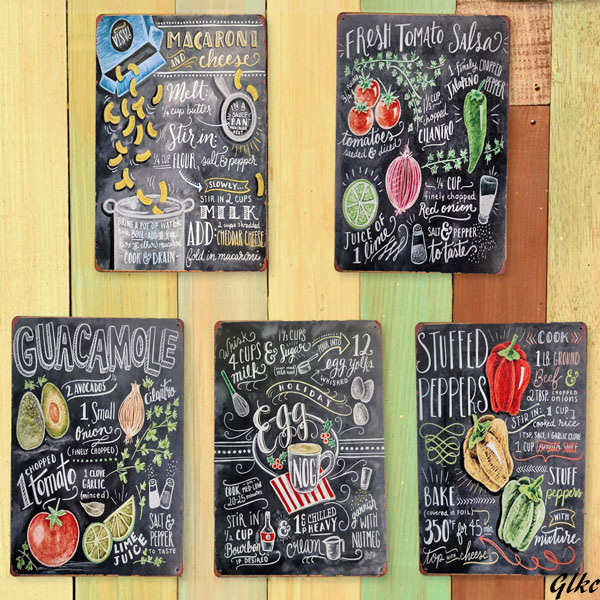 PASTA
MACARONI
AND cheese
Melt:
¼ cup butter
IN A
SAUCE
PAN
Stir in:
¼ CUP FLOUR salt & pepper
SLOWLY...
STIR IN 2 CUPS
MILK
2 cups shredded
ADD CHEDDAR CHEESE
fold in macaroni
BRING A POT OF WATER
COOK & DRAIN
FRESH TOMATO SALSA
tomatoes
seeded & diced
chopped
CILANTRO
1 finely CHOPPED
JALAPEÑO PEPPER
¼ CUP
finely chopped
Red onion
JUICE OF
1 lime
SALT &
PEPPER
to taste
GUACAMOLE
2 AVOCADOS
1 Small
onion
(FINELY CHOPPED)
Cilantro
1 CHOPPED
tomato
1 CLOVE
GARLIC
(minced)
LIME
JUICE
SALT &
PEPPER
TO TASTE
4 CUPS
milk
&
1½ CUPS
Sugar
POUR INTO
12
egg yolks
WHISKED
HOLIDAY
Egg
NOG
COOK MED-LOW
20-25 minutes
STIR IN
½ CUP
Bourbon
IF DESIRED
&
1 C CHILLED
HEAVY
cream
garnish
WITH
NUTMEG
STUFFED
PEPPERS
COOK
1 LB. GROUND
Beef &
2 TBSP. CHOPPED
onions
STIR IN: 1 CUP
cooked rice
1 TSP. SALT, 1 GARLIC CLOVE
1 CUP TOMATO SAUCE
STUFF
peppers
WITH
mixture
BAKE
(covered in FOIL)
350°F for 45
top with cheese
Glkc